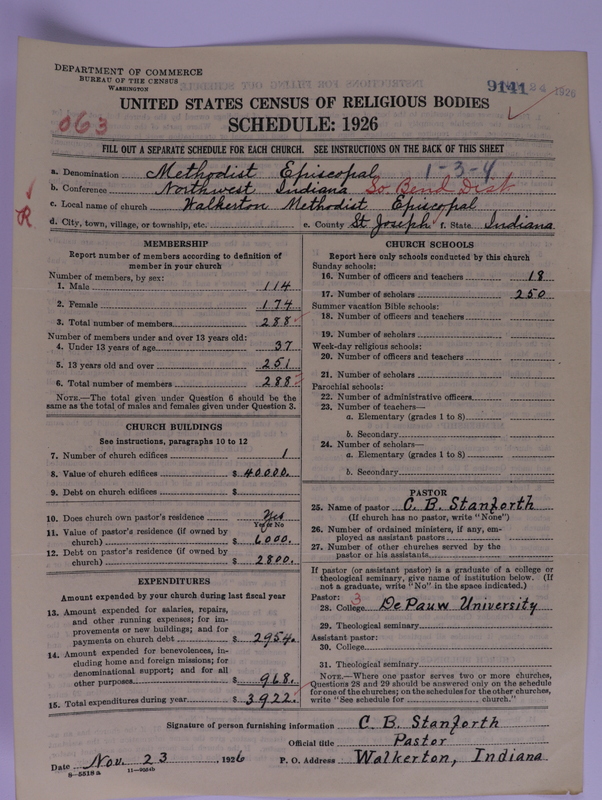 DEPARTMENT OF COMMERCE
BUREAU OF THE CENSUS
WASHINGTON
9141 24 1926
UNITED STATES CENSUS OF RELIGIOUS BODIES
063
SCHEDULE: 1926
FILL OUT A SEPARATE SCHEDULE FOR EACH CHURCH. SEE INSTRUCTIONS ON THE BACK OF THIS SHEET
a. Denomination Methodist Episcopal 1-3-4
b. Conference Northwest Indiana So. Bend Dist
c. Local name of church Walkerton Methodist Episcopal
R
d. City, town, village, or township, etc. e. County St Joseph f. State Indiana
MEMBERSHIP
Report number of members according to definition of
member in your church
Number of members, by sex:
1. Male 114
2. Female 174
3. Total number of members 288
Number of members under and over 13 years old:
4. Under 13 years of age 37
5. 13 years old and over 251
6. Total number of members 288
NOTE.—The total given under Question 6 should be the
same as the total of males and females given under Question 3.
CHURCH BUILDINGS
See instructions, paragraphs 10 to 12
7. Number of church edifices 1
8. Value of church edifices $ 40000.
9. Debt on church edifices $
10. Does church own pastor's residence Yes
Yes or No
11. Value of pastor's residence (if owned by
church) $ 6000.
12. Debt on pastor's residence (if owned by
church) $ 2800.
EXPENDITURES
Amount expended by your church during last fiscal year
13. Amount expended for salaries, repairs,
and other running expenses; for im-
provements or new buildings; and for
payments on church debt $ 2954.
14. Amount expended for benevolences, in-
cluding home and foreign missions; for
denominational support; and for all
other purposes $ 968.
15. Total expenditures during year $ 3922.
CHURCH SCHOOLS
Report here only schools conducted by this church
Sunday schools:
16. Number of officers and teachers 18
17. Number of scholars 250
Summer vacation Bible schools:
18. Number of officers and teachers
19. Number of scholars
Week-day religious schools:
20. Number of officers and teachers
21. Number of scholars
Parochial schools:
22. Number of administrative officers
23. Number of teachers—
a. Elementary (grades 1 to 8)
b. Secondary
24. Number of scholars—
a. Elementary (grades 1 to 8)
b. Secondary
PASTOR
25. Name of pastor C. B. Stanforth
(If church has no pastor, write "None")
26. Number of ordained ministers, if any, em-
ployed as assistant pastors
27. Number of other churches served by the
pastor or his assistants
If pastor (or assistant pastor) is a graduate of a college or
theological seminary, give name of institution below. (If
not a graduate, write "No" in the space indicated.)
Pastor: 3
28. College DePauw University
29. Theological seminary
Assistant pastor:
30. College
31. Theological seminary
NOTE.—Where one pastor serves two or more churches,
Questions 28 and 29 should be answered only on the schedule
for one of the churches; on the schedules for the other churches,
write "See schedule for church."
Signature of person furnishing information C. B. Stanforth
Official title Pastor
Date Nov. 23 1926 P. O. Address Walkerton, Indiana
8-5518a